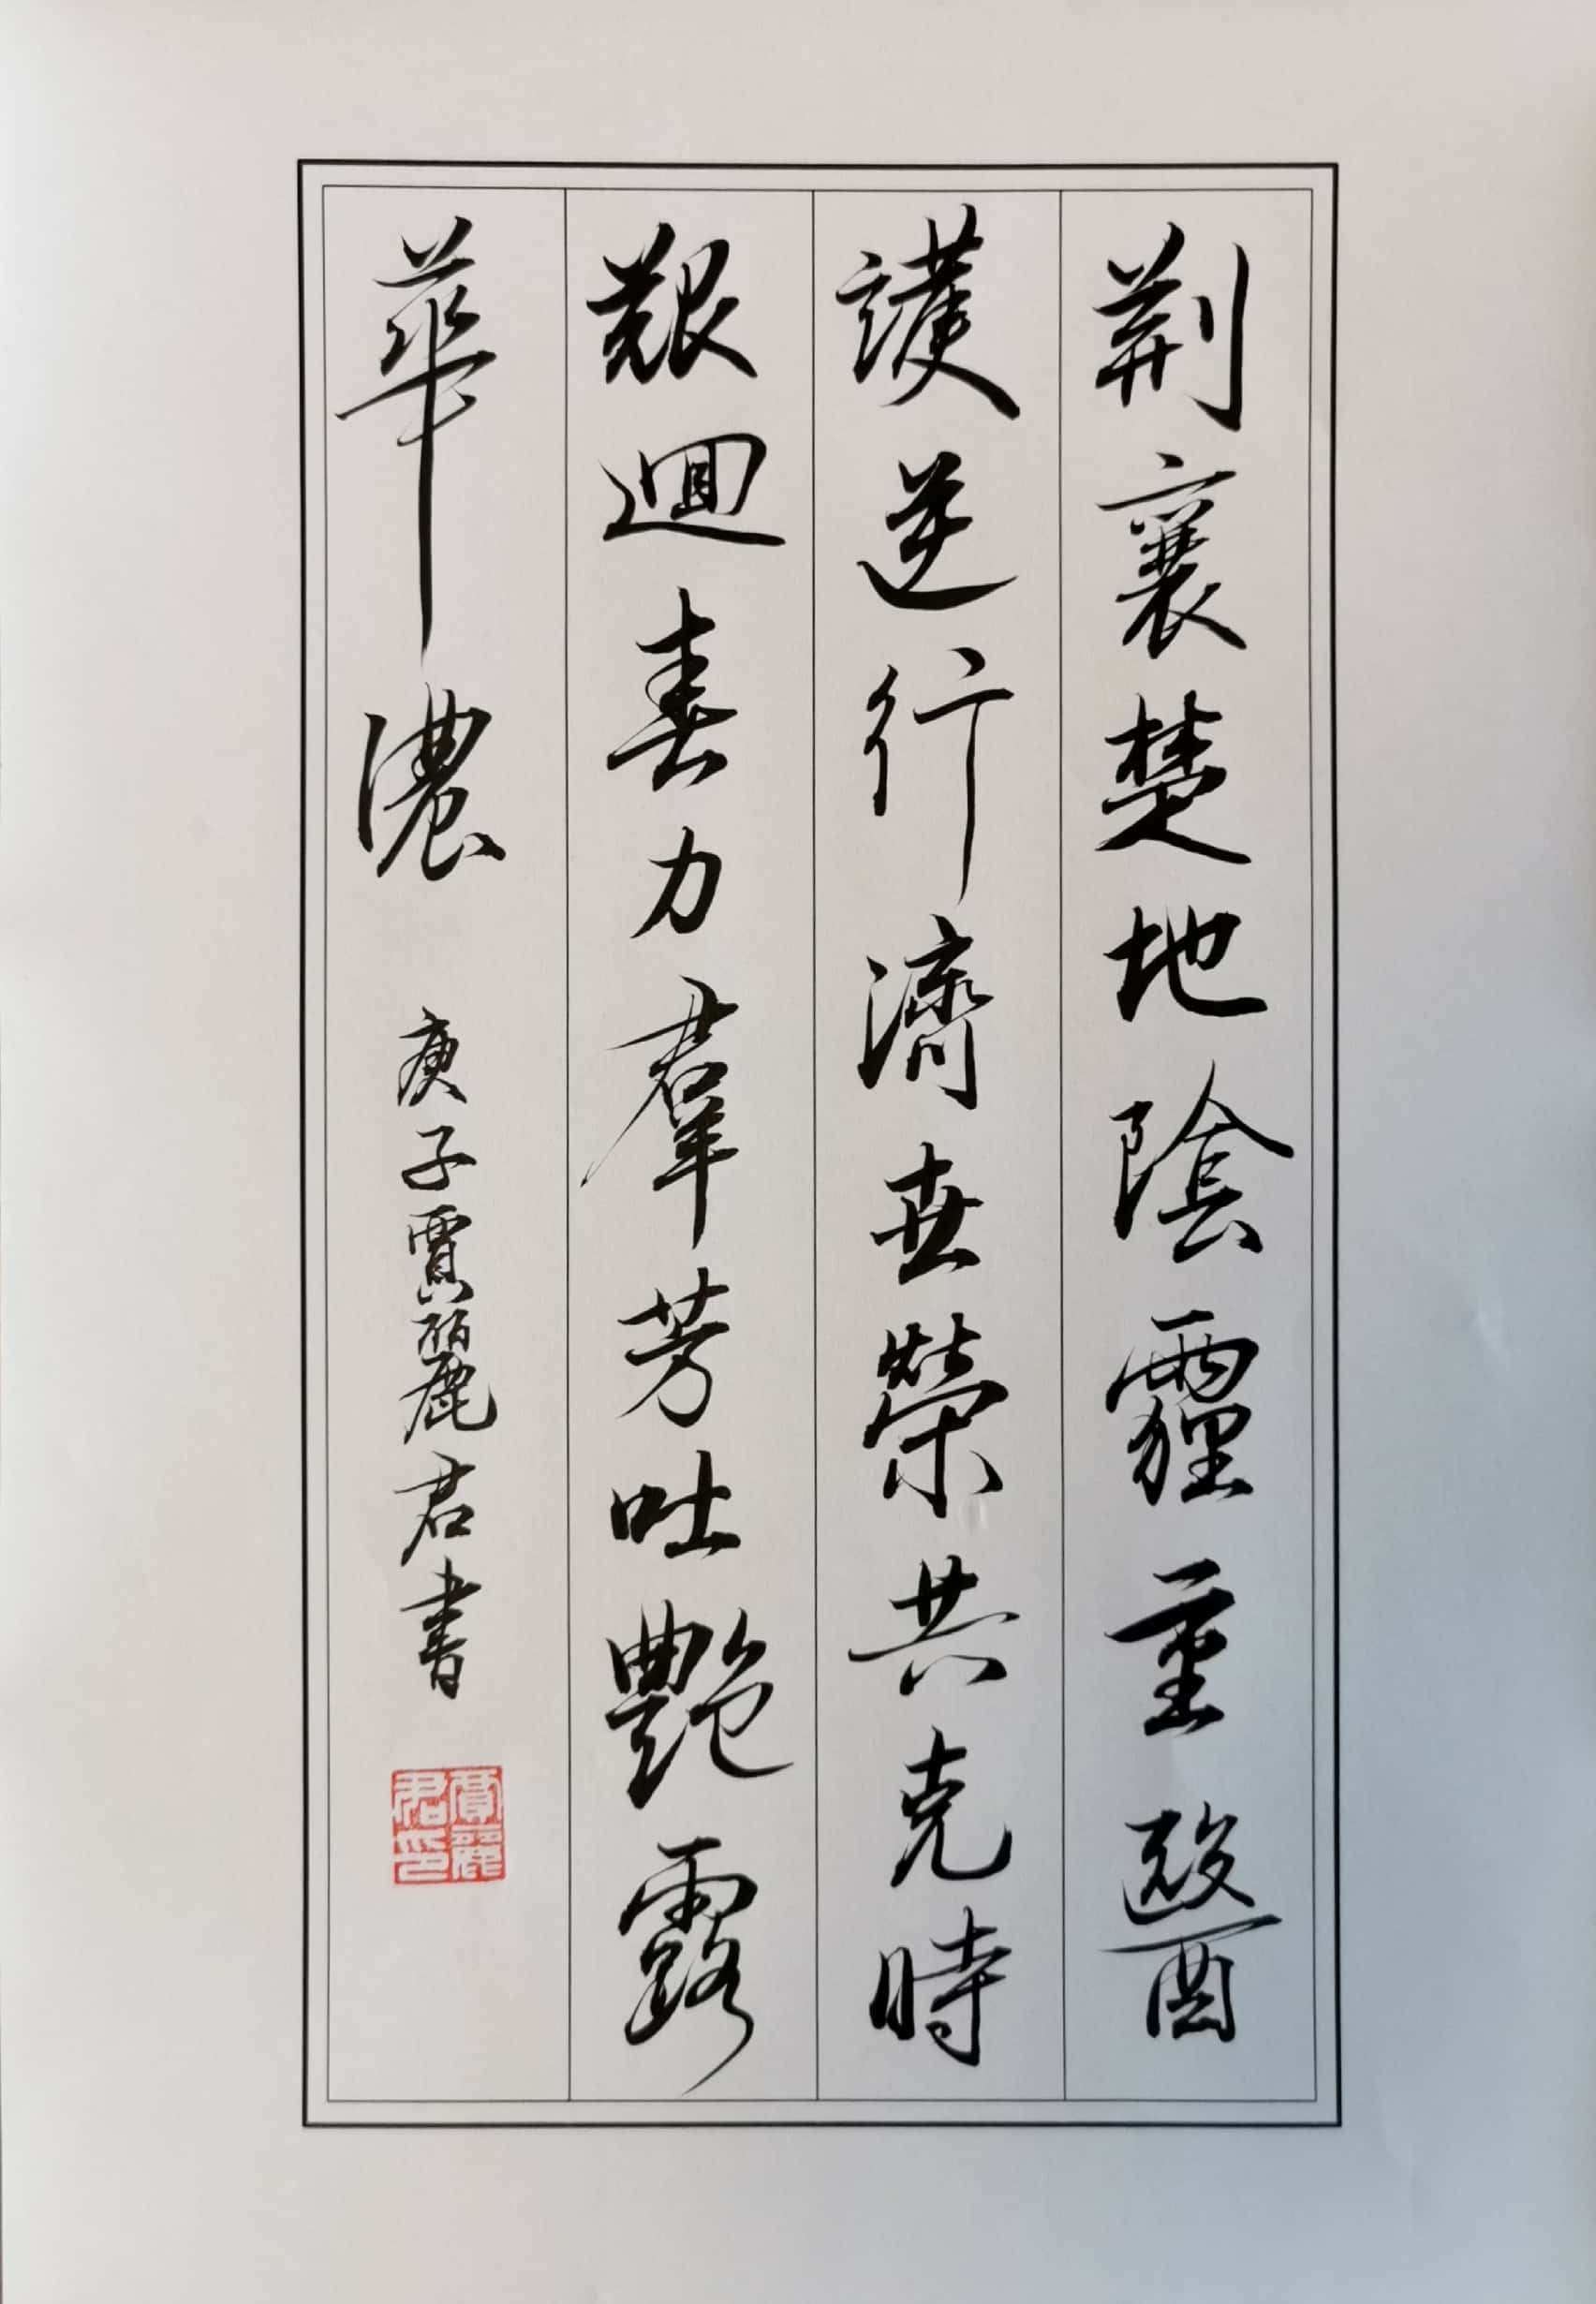 荆襄楚地陰霾重醫
護逆行濟世榮共克時
艱迴春力羣芳吐艷露
華濃
庚子賈麗君書
賈麗
君印